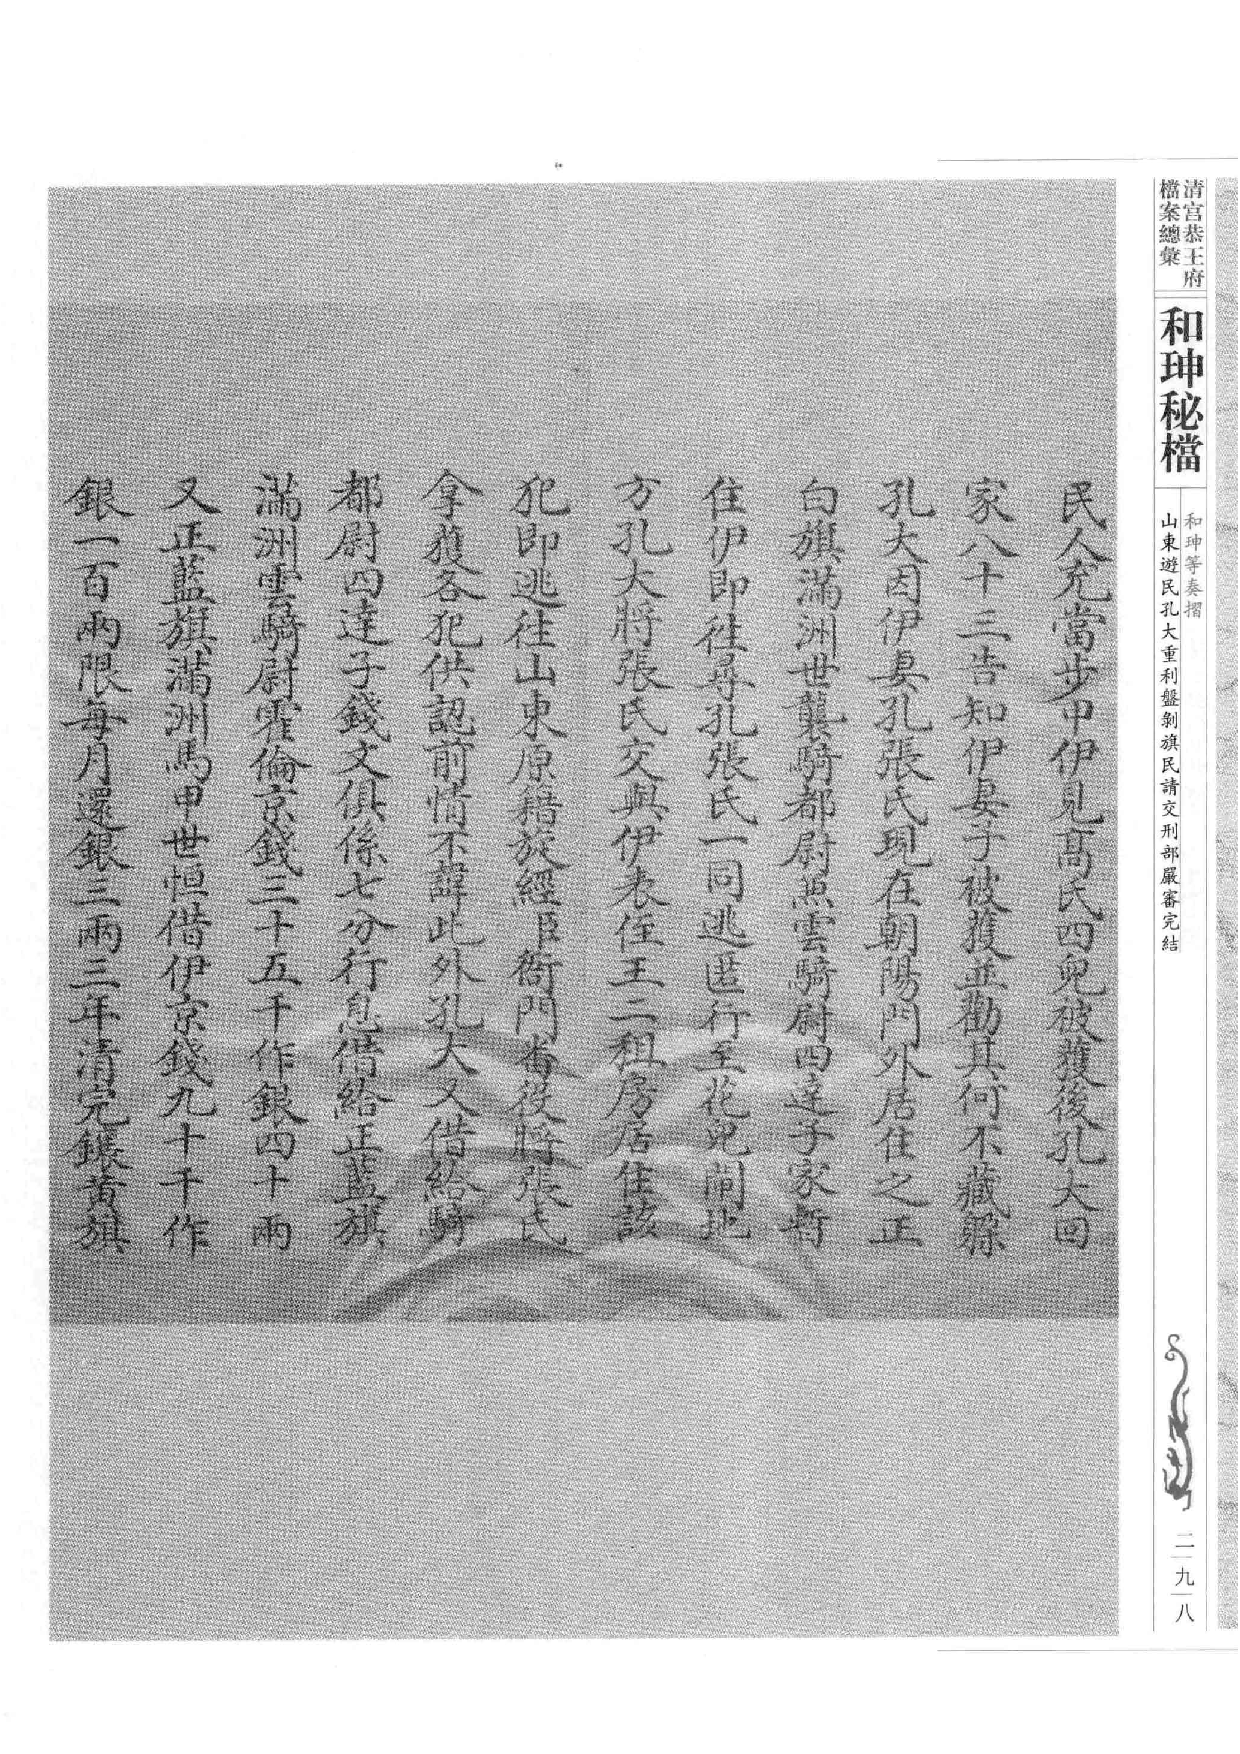 清宮恭王府
檔案總彙
和珅秘檔
和珅等奏摺
山東遊民孔大重利盤剝旗民請交刑部嚴審完結
二九八
民人充當步甲伊見高氏四兒被獲後孔大回
家八十三告知伊妻子被獲並勸其何不藏躲
孔大因伊妻孔張氏現在朝陽門外居住之正
白旗滿洲世襲騎都尉兼雲騎尉四達子家暫
住伊即徃尋孔張氏一同逃匿行至花兒閘地
方孔大將張氏交與伊表侄王二租房居住該
犯即逃往山東原籍旋經臣衙門番役將張氏
拿獲各犯供認前情不諱此外孔大又借給騎
都尉四達子錢文俱係七分行息借給正藍旗
滿洲雲騎尉霍倫京錢三十五千作銀四十兩
又正藍旗滿洲馬甲世恒借伊京錢九十千作
銀一百兩限每月還銀三兩三年清完鑲黃旗